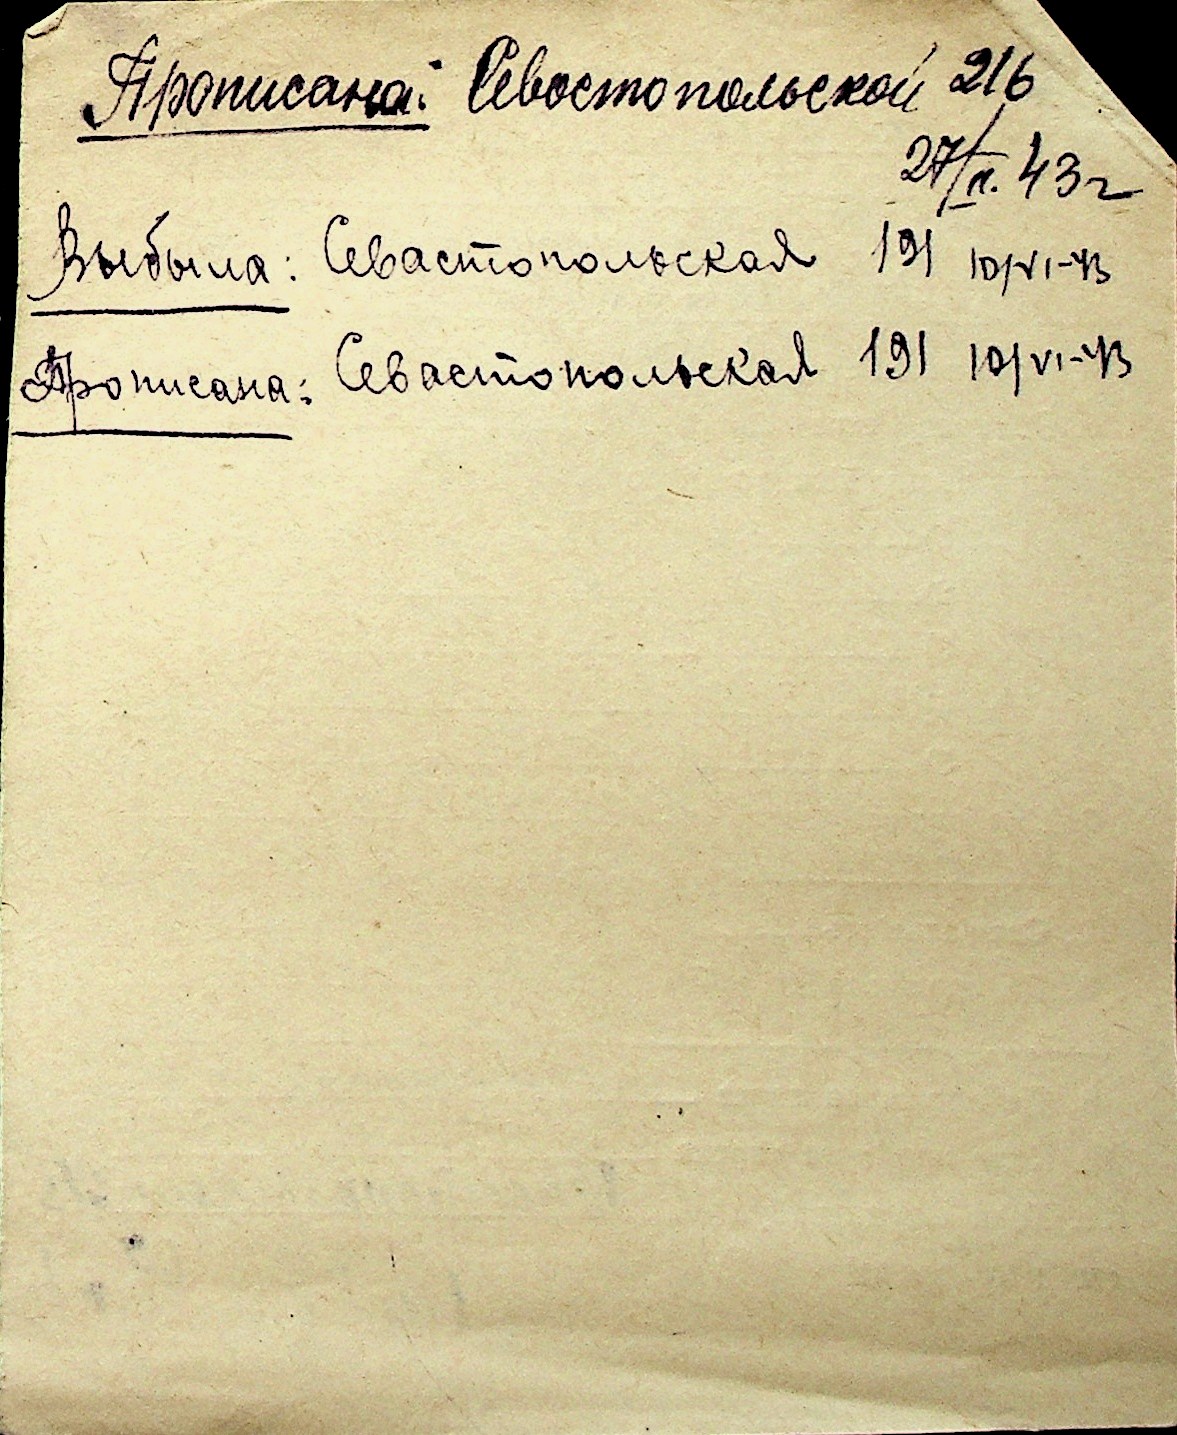 Прописана: Севостопольской 216
27/II. 43 г
Выбыла: Севастопольская 191 10/VI-43
Прописана: Севастопольская 191 10/VI-43